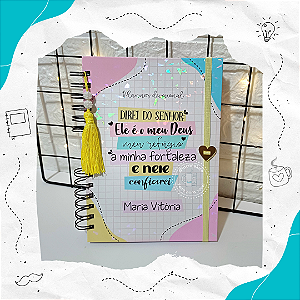 Planner devocional
DIREI DO SENHOR
Ele é o meu Deus
meu refúgio
a minha fortaleza
e nele
confiarei
Maria Vitória